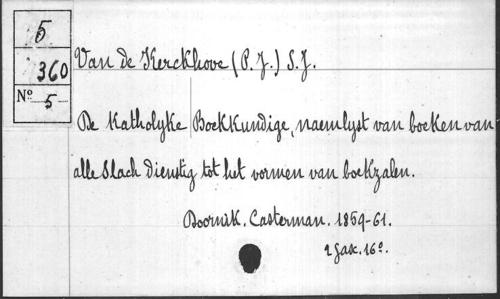 5
360
Nº 5
Van de Kerckhove (P. J.) S. J.
De Katholyke Boekkundige, naemlyst van boeken van
alle Slach dienstig tot het vormen van boekzalen.
Doornik. Casterman. 1859-61.
2 fax. 16º.